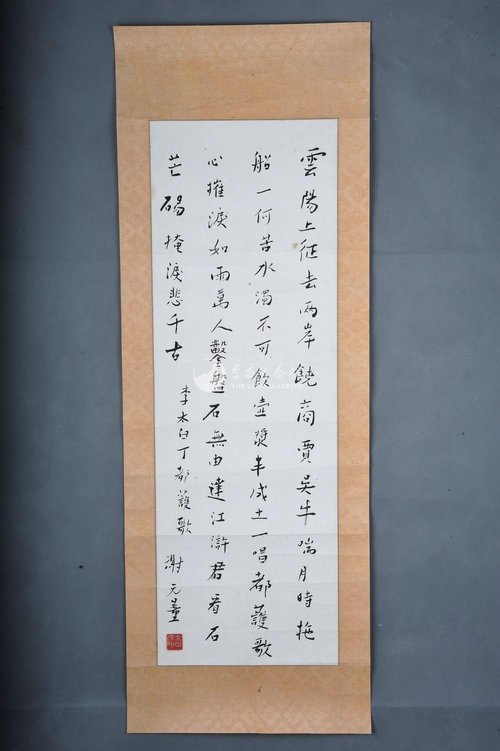 雲陽上征去兩岸饒商賈吳牛喘月時拖
船一何苦水濁不可飲壺漿半成土一唱都護歌
心摧淚如雨萬人鑿盤石無由達江滸君看石
芒碭掩淚悲千古
李太白丁都護歌 謝无量